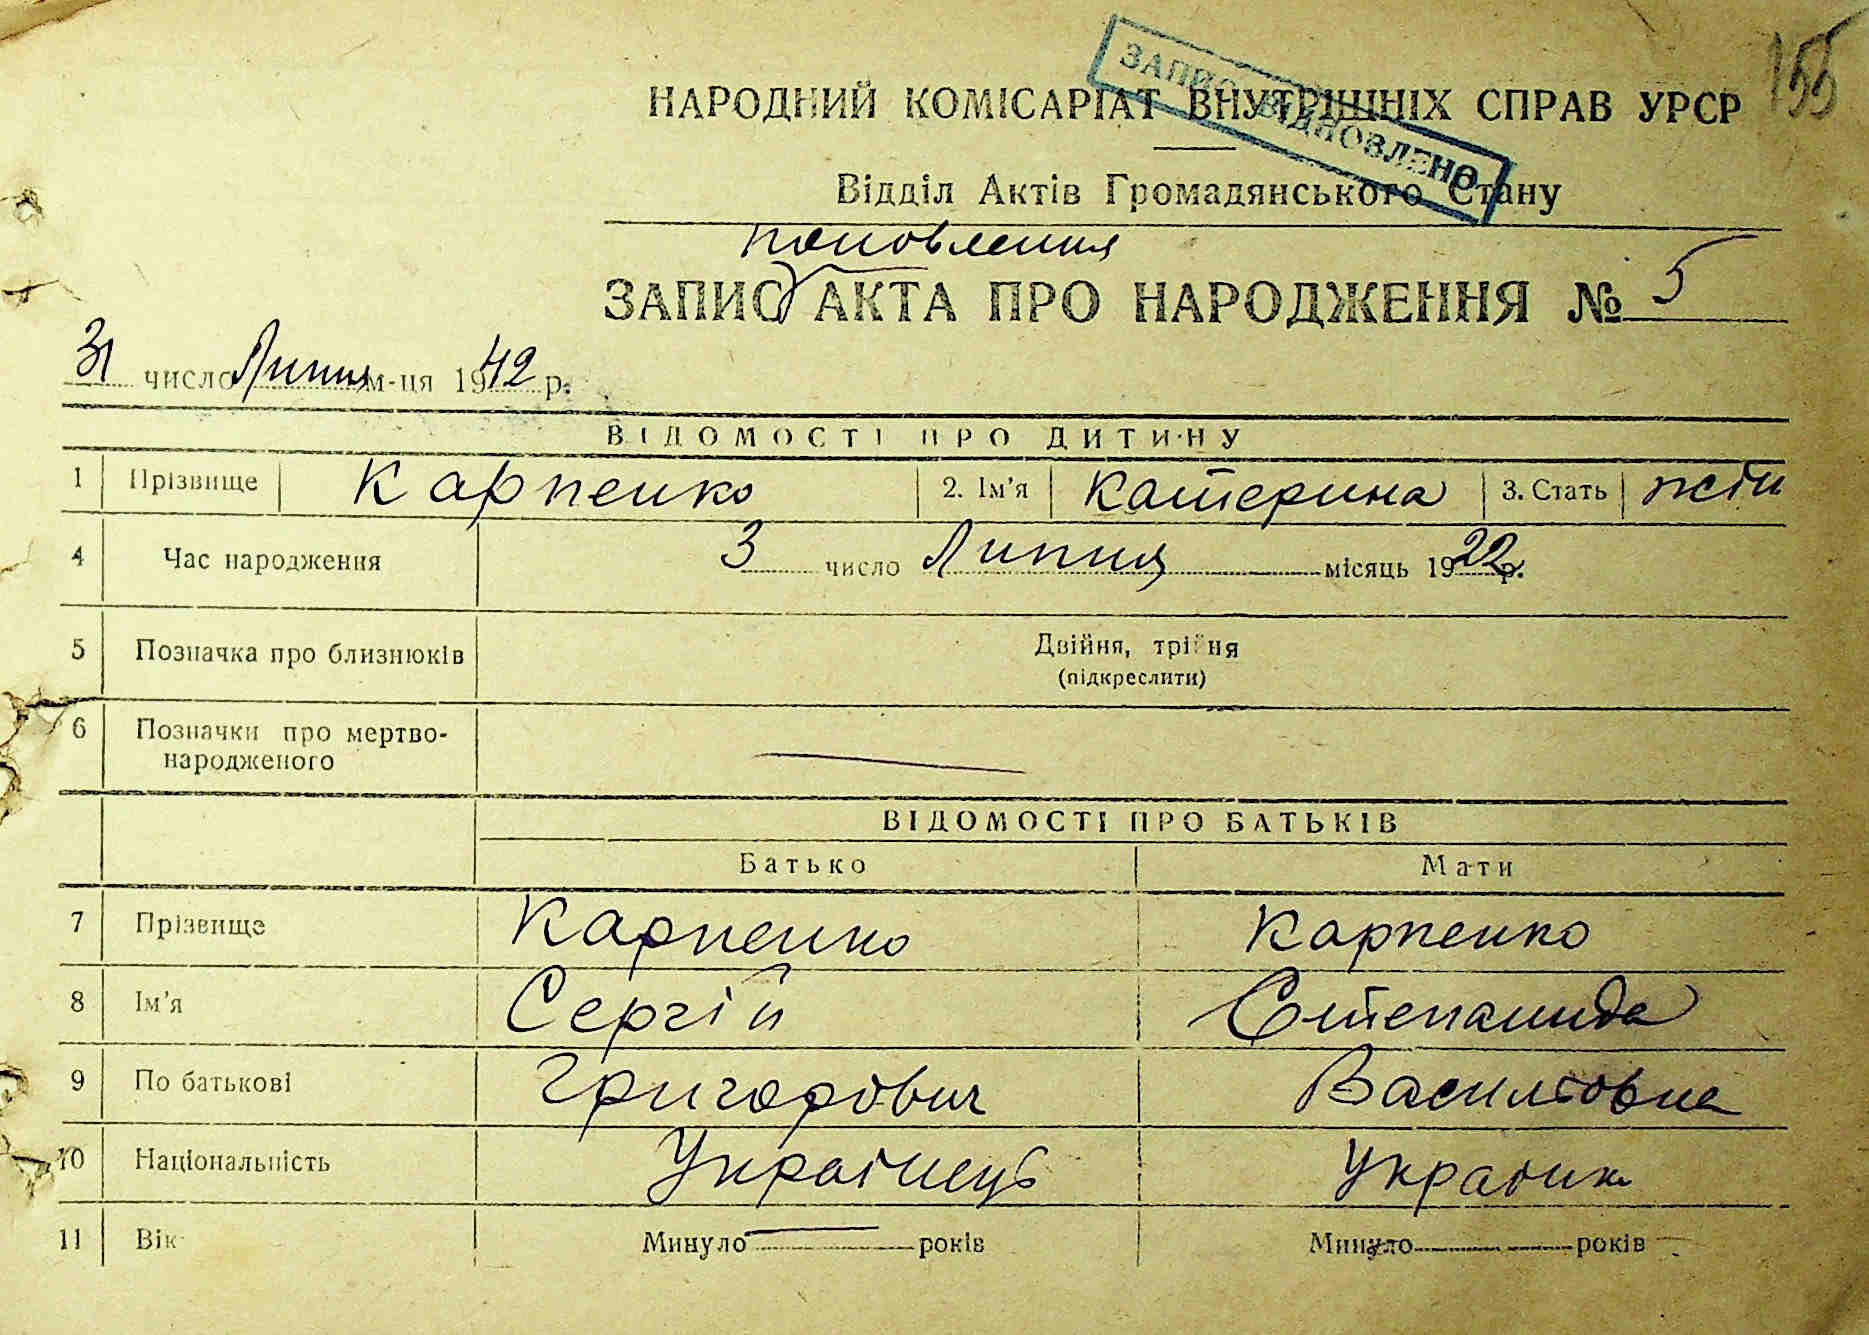 155
ЗАПИС ВІДНОВЛЕНО
НАРОДНИЙ КОМІСАРІАТ ВНУТРІШНІХ СПРАВ УРСР
Відділ Актів Громадянського Стану
поновлення
ЗАПИС АКТА ПРО НАРОДЖЕННЯ № 5
31 число Липня м-ця 1942 р.
ВІДОМОСТІ ПРО ДИТИНУ
1 Прізвище Карпенко 2. Ім'я Катерина 3. Стать жін
4 Час народження 3 число Липня місяць 1922 р.
5 Позначка про близнюків Двійня, трійня
(підкреслити)
6 Позначки про мертво-
народженого
ВІДОМОСТІ ПРО БАТЬКІВ
Батько Мати
7 Прізвище Карпенко Карпенко
8 Ім'я Сергій Степанида
9 По батькові Григорович Василовна
10 Національність Українець Украінк
11 Вік Минуло років Минуло років